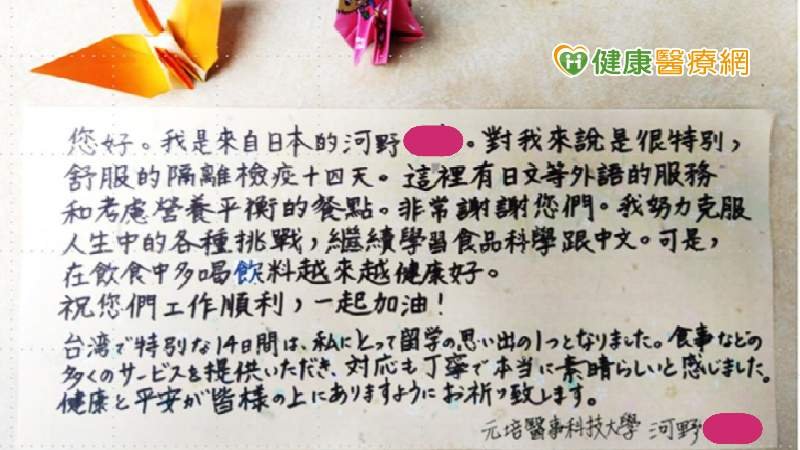 健康醫療網
您好。我是來自日本的河野。對我來說是很特別，
舒服的隔離檢疫十四天。這裡有日文等外語的服務
和考慮營養平衡的餐點。非常謝謝您們。我努力克服
人生中的各種挑戰，繼續學習食品科學跟中文。可是，
在飲食中多喝飲料越來越健康好。
祝您們工作順利，一起加油！
台湾で特別な14日間は、私にとって留学の思い出の1つとなりました。食事などの
多くのサービスを提供いただき、対応も丁寧で本当に素晴らしいと感じました。
健康と平安が皆様の上にありますようにお祈り致します。
元培醫事科技大學 河野